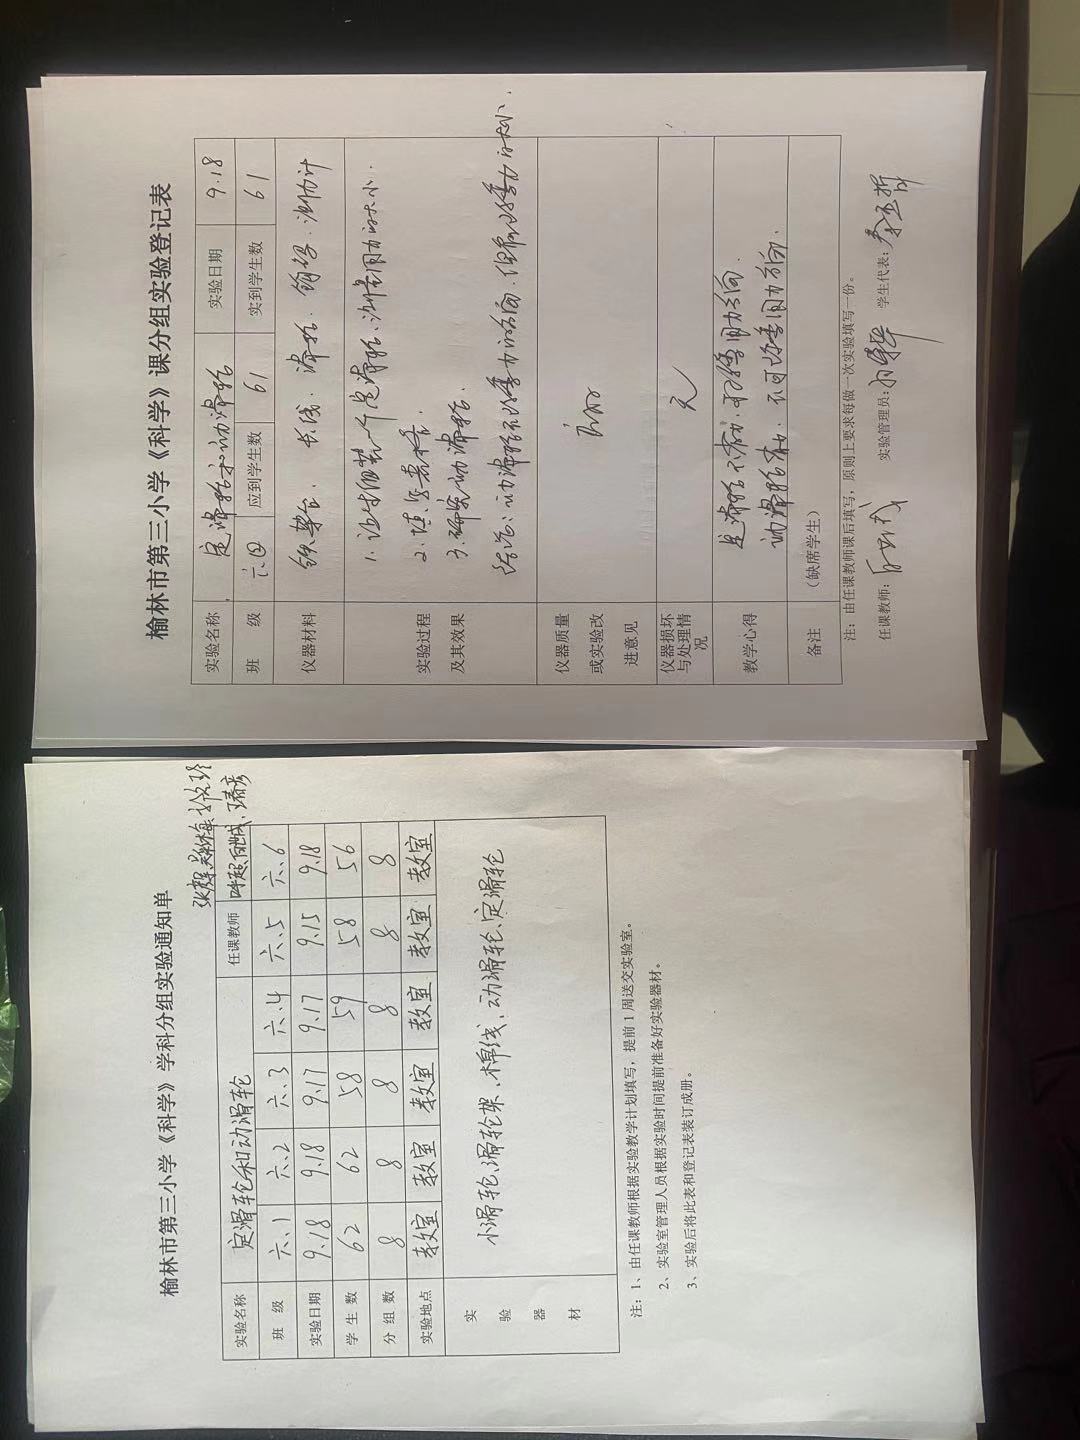 榆林市第三小学《科学》学科分组实验通知单
实验名称 定滑轮和动滑轮 任课教师
班级 六.1 六.2 六.3 六.4 六.5 六.6
实验日期 9.18 9.18 9.17 9.17 9.15 9.18
学生数 62 62 58 59 58 56
分组数 8 8 8 8 8 8
实验地点 教室 教室 教室 教室 教室 教室
实验器材 小滑轮、滑轮架、棉线、动滑轮、定滑轮
注：1、由任课教师根据实验教学计划填写，提前1周送交实验室。
2、实验室管理人员根据实验时间提前准备好实验器材。
3、实验后将此表和登记表装订成册。
榆林市第三小学《科学》课分组实验登记表
实验名称 定滑轮和动滑轮 实验日期 9.18
班级 六.④ 应到学生数 61 实到学生数 61
仪器材料 铁架台. 长线. 滑轮. 钩码. 测力计
实验过程及其效果 1. 组装一个定滑轮.测量用力的大小.
2. 填
3. 研究动滑轮.
结论:
仪器质量或实验改进意见
仪器损坏与处理情况 无
教学心得 定滑轮不省力.可改变用力方向.
动滑轮省力. 不可改变用力方向.
备注 （缺席学生）
注：由任课教师课后填写，原则上要求每做一次实验填写一份。
任课教师: 实验管理员: 学生代表: